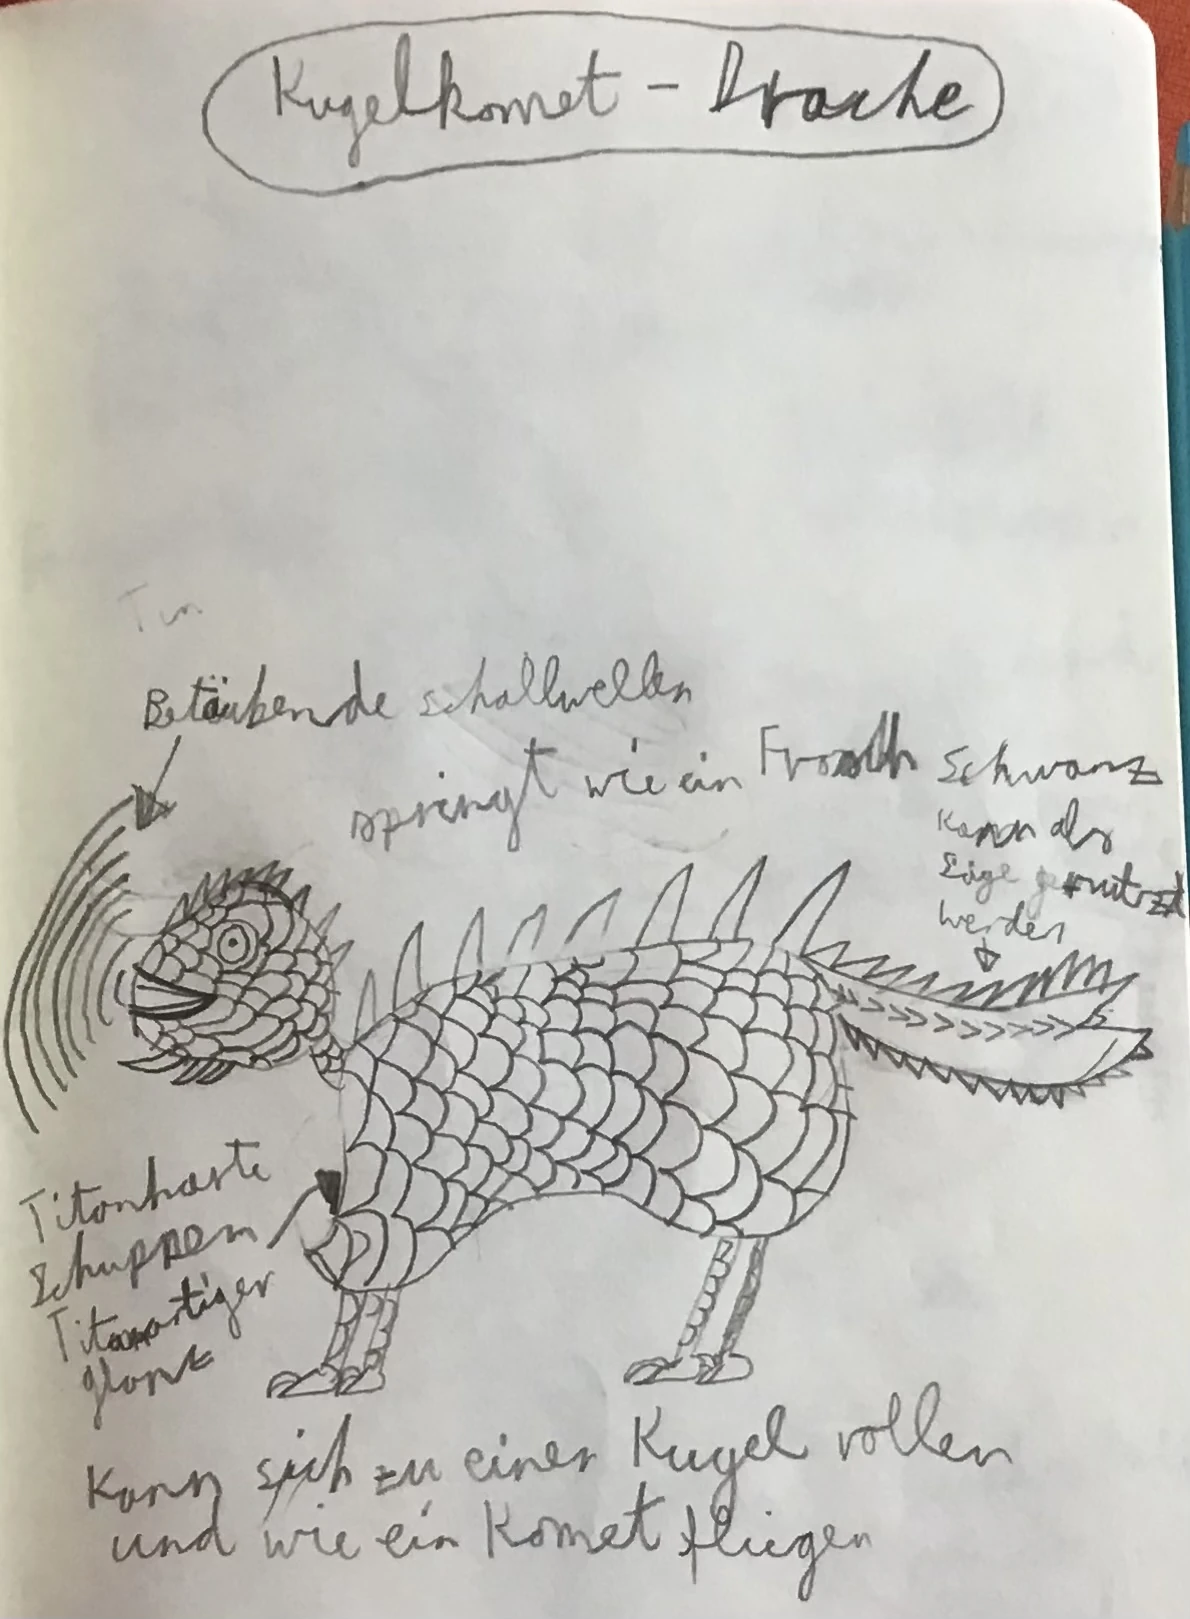 Kugelkomet - Drache
Betäubende schallwellen
springt wie ein Frosch
Schwanz
kann als
Säge genutzt
werden
Titanharte
Schuppen
Titanartiger
glanz
Kann sich zu einer Kugel rollen
und wie ein Komet fliegen